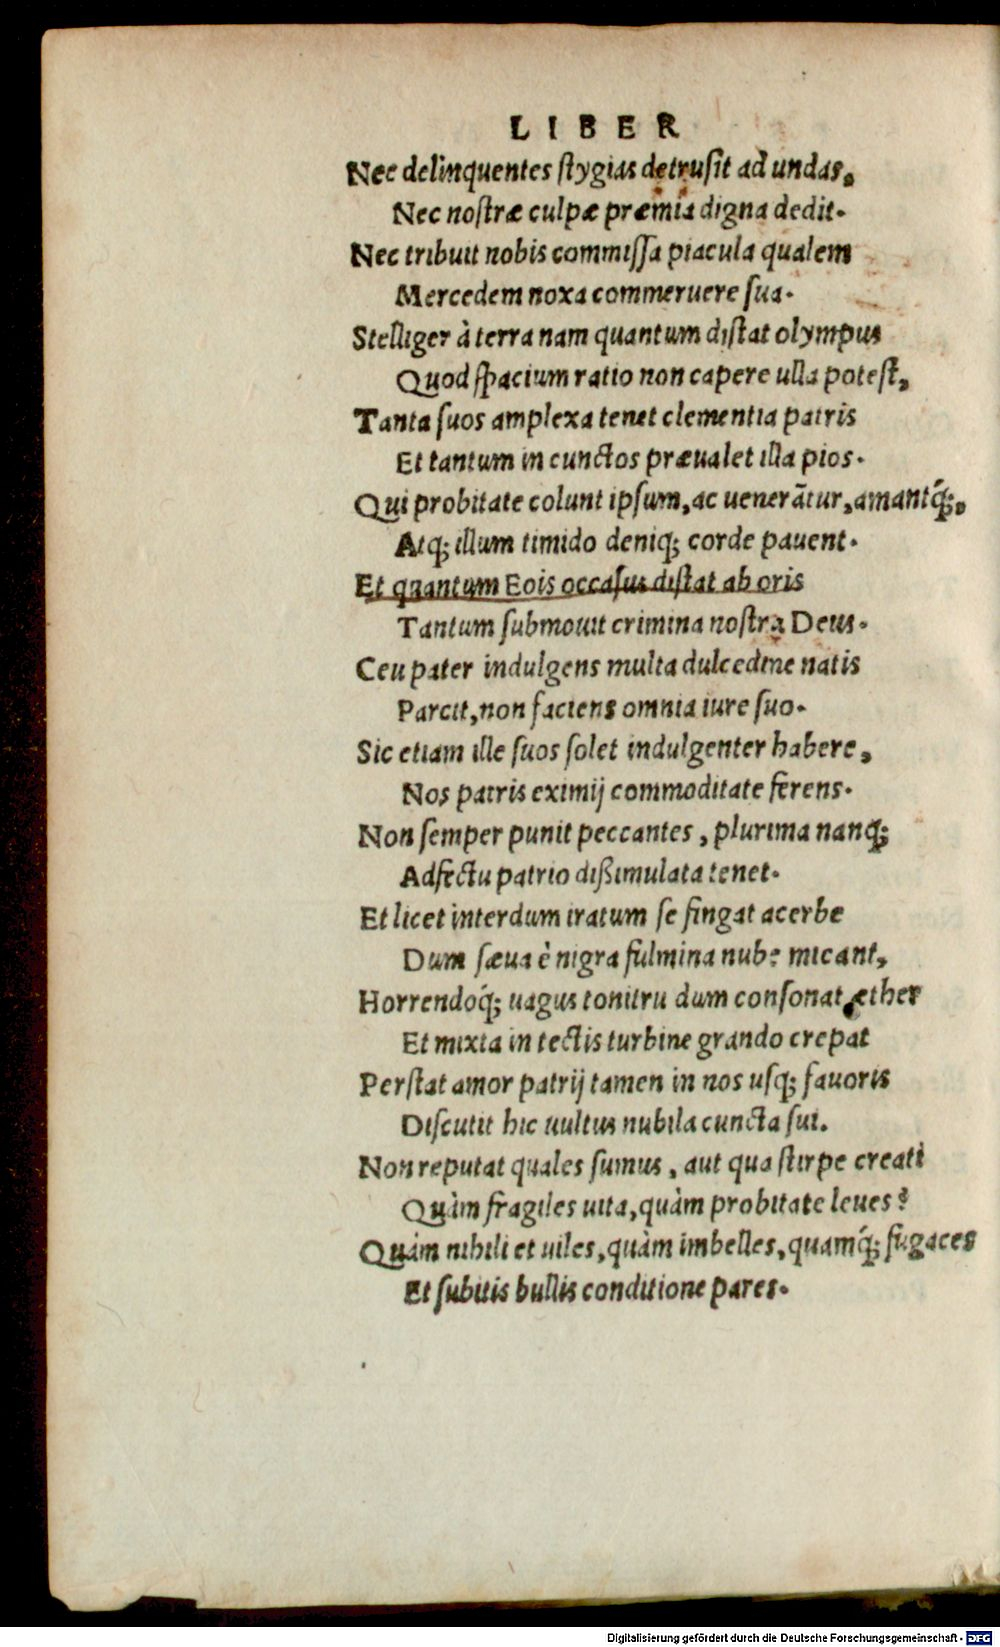 LIBER
Nec delinquentes stygias detrusit ad undas,
Nec nostræ culpæ præmia digna dedit.
Nec tribuit nobis commissa piacula qualem
Mercedem noxa commeruere sua.
Stelliger à terra nam quantum distat olympus
Quod spacium ratio non capere ulla potest,
Tanta suos amplexa tenet clementia patris
Et tantum in cunctos præualet illa pios.
Qui probitate colunt ipsum, ac uenerãtur, amantq́;,
Atq; illum timido deniq; corde pauent.
Et quantum Eois occasus distat ab oris
Tantum submouit crimina nostra Deus.
Ceu pater indulgens multa dulcedine natis
Parcit, non faciens omnia iure suo.
Sic etiam ille suos solet indulgenter habere,
Nos patris eximij commoditate ferens.
Non semper punit peccantes, plurima nanq;
Adfectu patrio dißimulata tenet.
Et licet interdum iratum se fingat acerbe
Dum sæua è nigra fulmina nube micant,
Horrendoq́; uagus tonitru dum consonat æther
Et mixta in tectis turbine grando crepat
Perstat amor patrij tamen in nos usq; fauoris
Discutit hic uultus nubila cuncta sui.
Non reputat quales sumus, aut qua stirpe creati
Quàm fragiles uita, quàm probitate leues?
Quàm nihili et uiles, quàm imbelles, quamq́; fugaces
Et subitis bullis conditione pares.
Digitalisierung gefördert durch die Deutsche Forschungsgemeinschaft - DFG